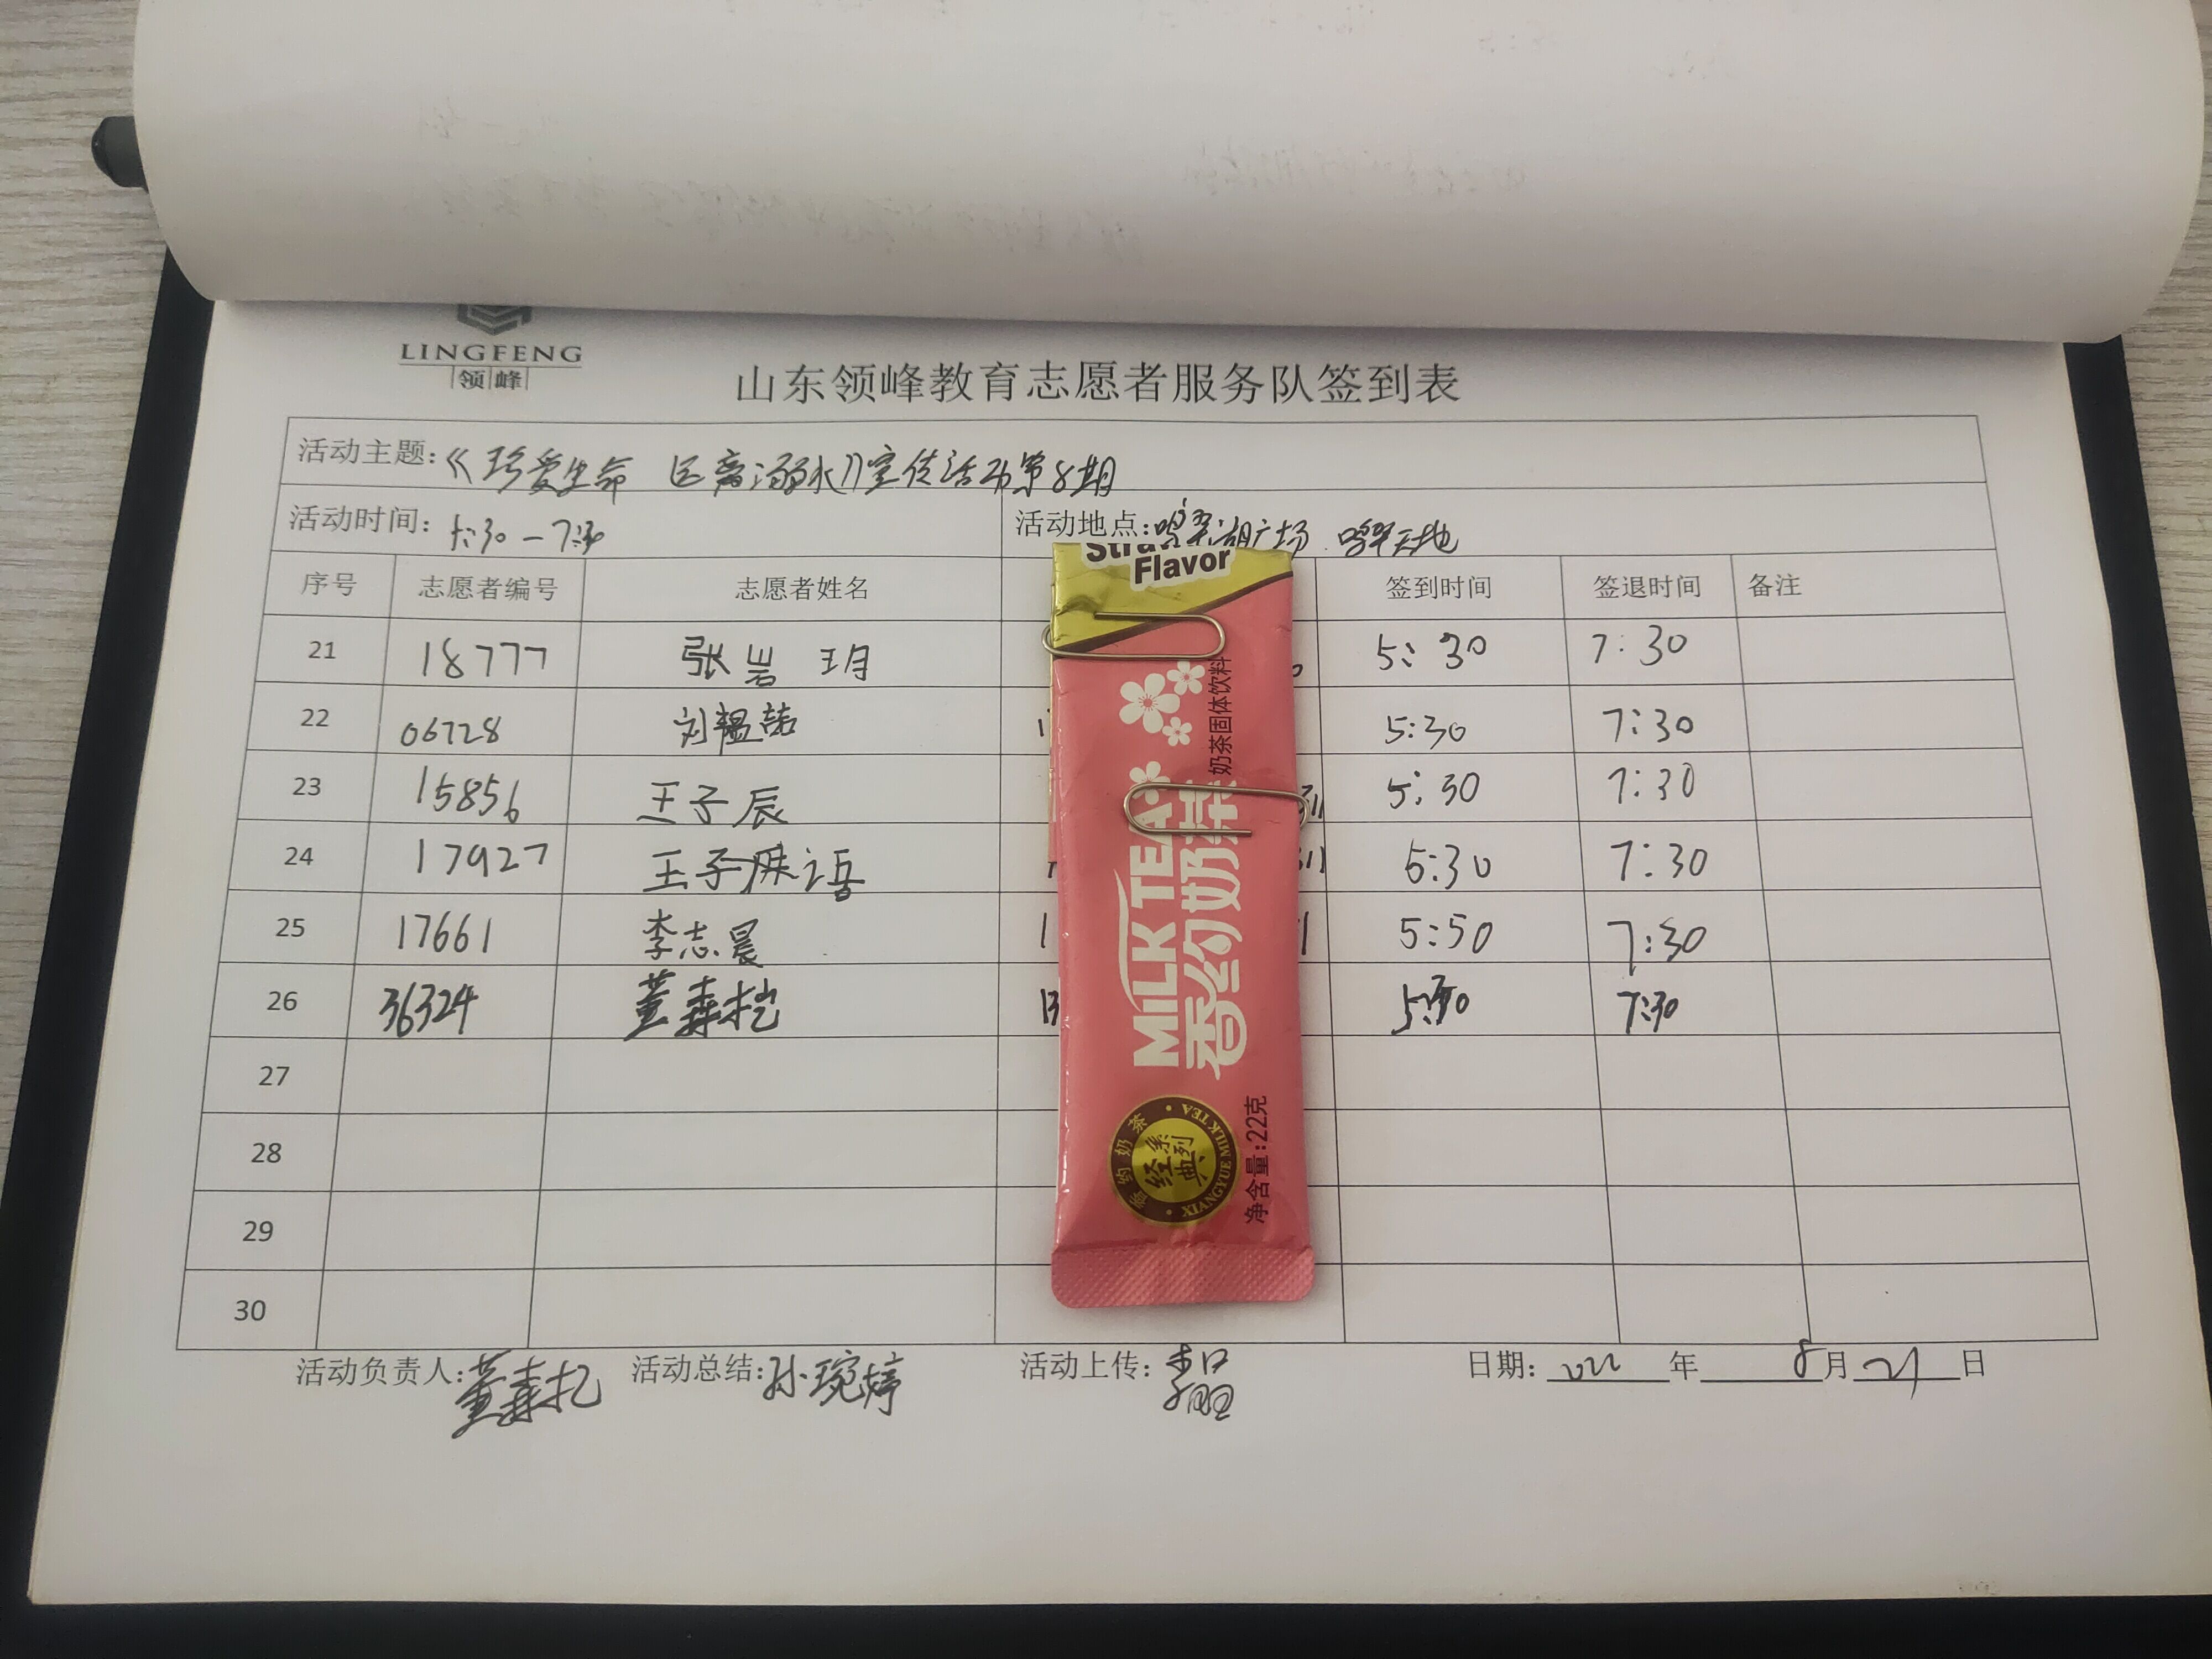 LINGFENG
领峰
山东领峰教育志愿者服务队签到表
活动主题:《珍爱生命 远离溺水》宣传活动第8期
活动时间: 5:30-7:30 活动地点: 广场
序号 志愿者编号 志愿者姓名 签到时间 签退时间 备注
21 18777 张岩玥 5:30 7:30
22 06728 刘韫喆 5:30 7:30
23 15856 王子辰 5:30 7:30
24 17927 王子 语 5:30 7:30
25 17661 李志晨 5:50 7:30
26 36324 董森 7:30
27
28
29
30
Flavor
奶茶固体饮料
MILK TEA
香约奶茶
香约奶茶
经典系列
XIANGYUE MILK TEA
净含量:22克
活动负责人: 董森 活动总结: 孙琬婷 活动上传: 日期: 2022 年 8 月 21 日